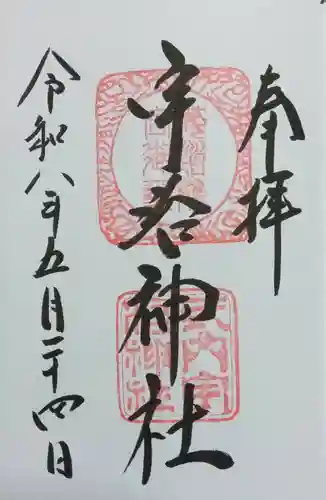 奉拝
宇谷神社
令和八年五月二十四日